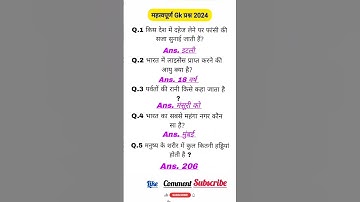 महत्वपूर्ण Gk प्रश्न 2024
Q.1 किस देश में दहेज लेने पर फांसी की
सजा सुनाई जाती है?
Ans. इटली
Q.2 भारत में लाइसेंस प्राप्त करने की
आयु क्या है?
Ans. 18 वर्ष
Q.3 पर्वतों की रानी किसे कहा जाता है
?
Ans. मंसूरी को
Q.4 भारत का सबसे महंगा नगर कौन
सा है?
Ans. मुंबई
Q.5 मनुष्य के शरीर में कुल कितनी हड्डियां
होती है ?
Ans. 206
Like Comment Subscribe